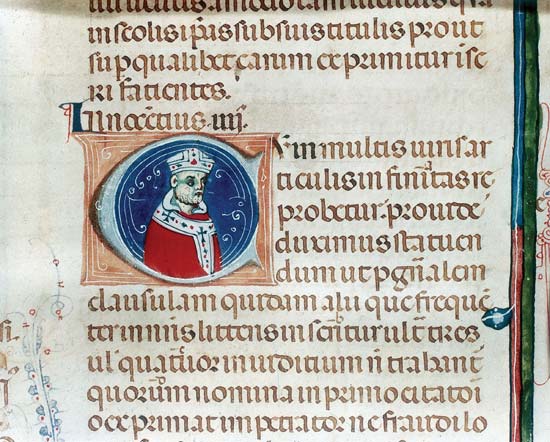 in scolis ipas sub suis titulis prout
sup qualibet earum exprimitur ise
ri facientes.
Innocētius iiij.
Cum in multis iuris ar
ticulis infinitas re
probetur. prouide
duximus statuen
dum ut p gñalem
clausulam quidam alii que freque
ter in nris litteris inscribitur ultra tres
uel quatuor in iuditium n trahant
quorum nomina in primo citatori
o exprimat impetrator ne fraudi lo